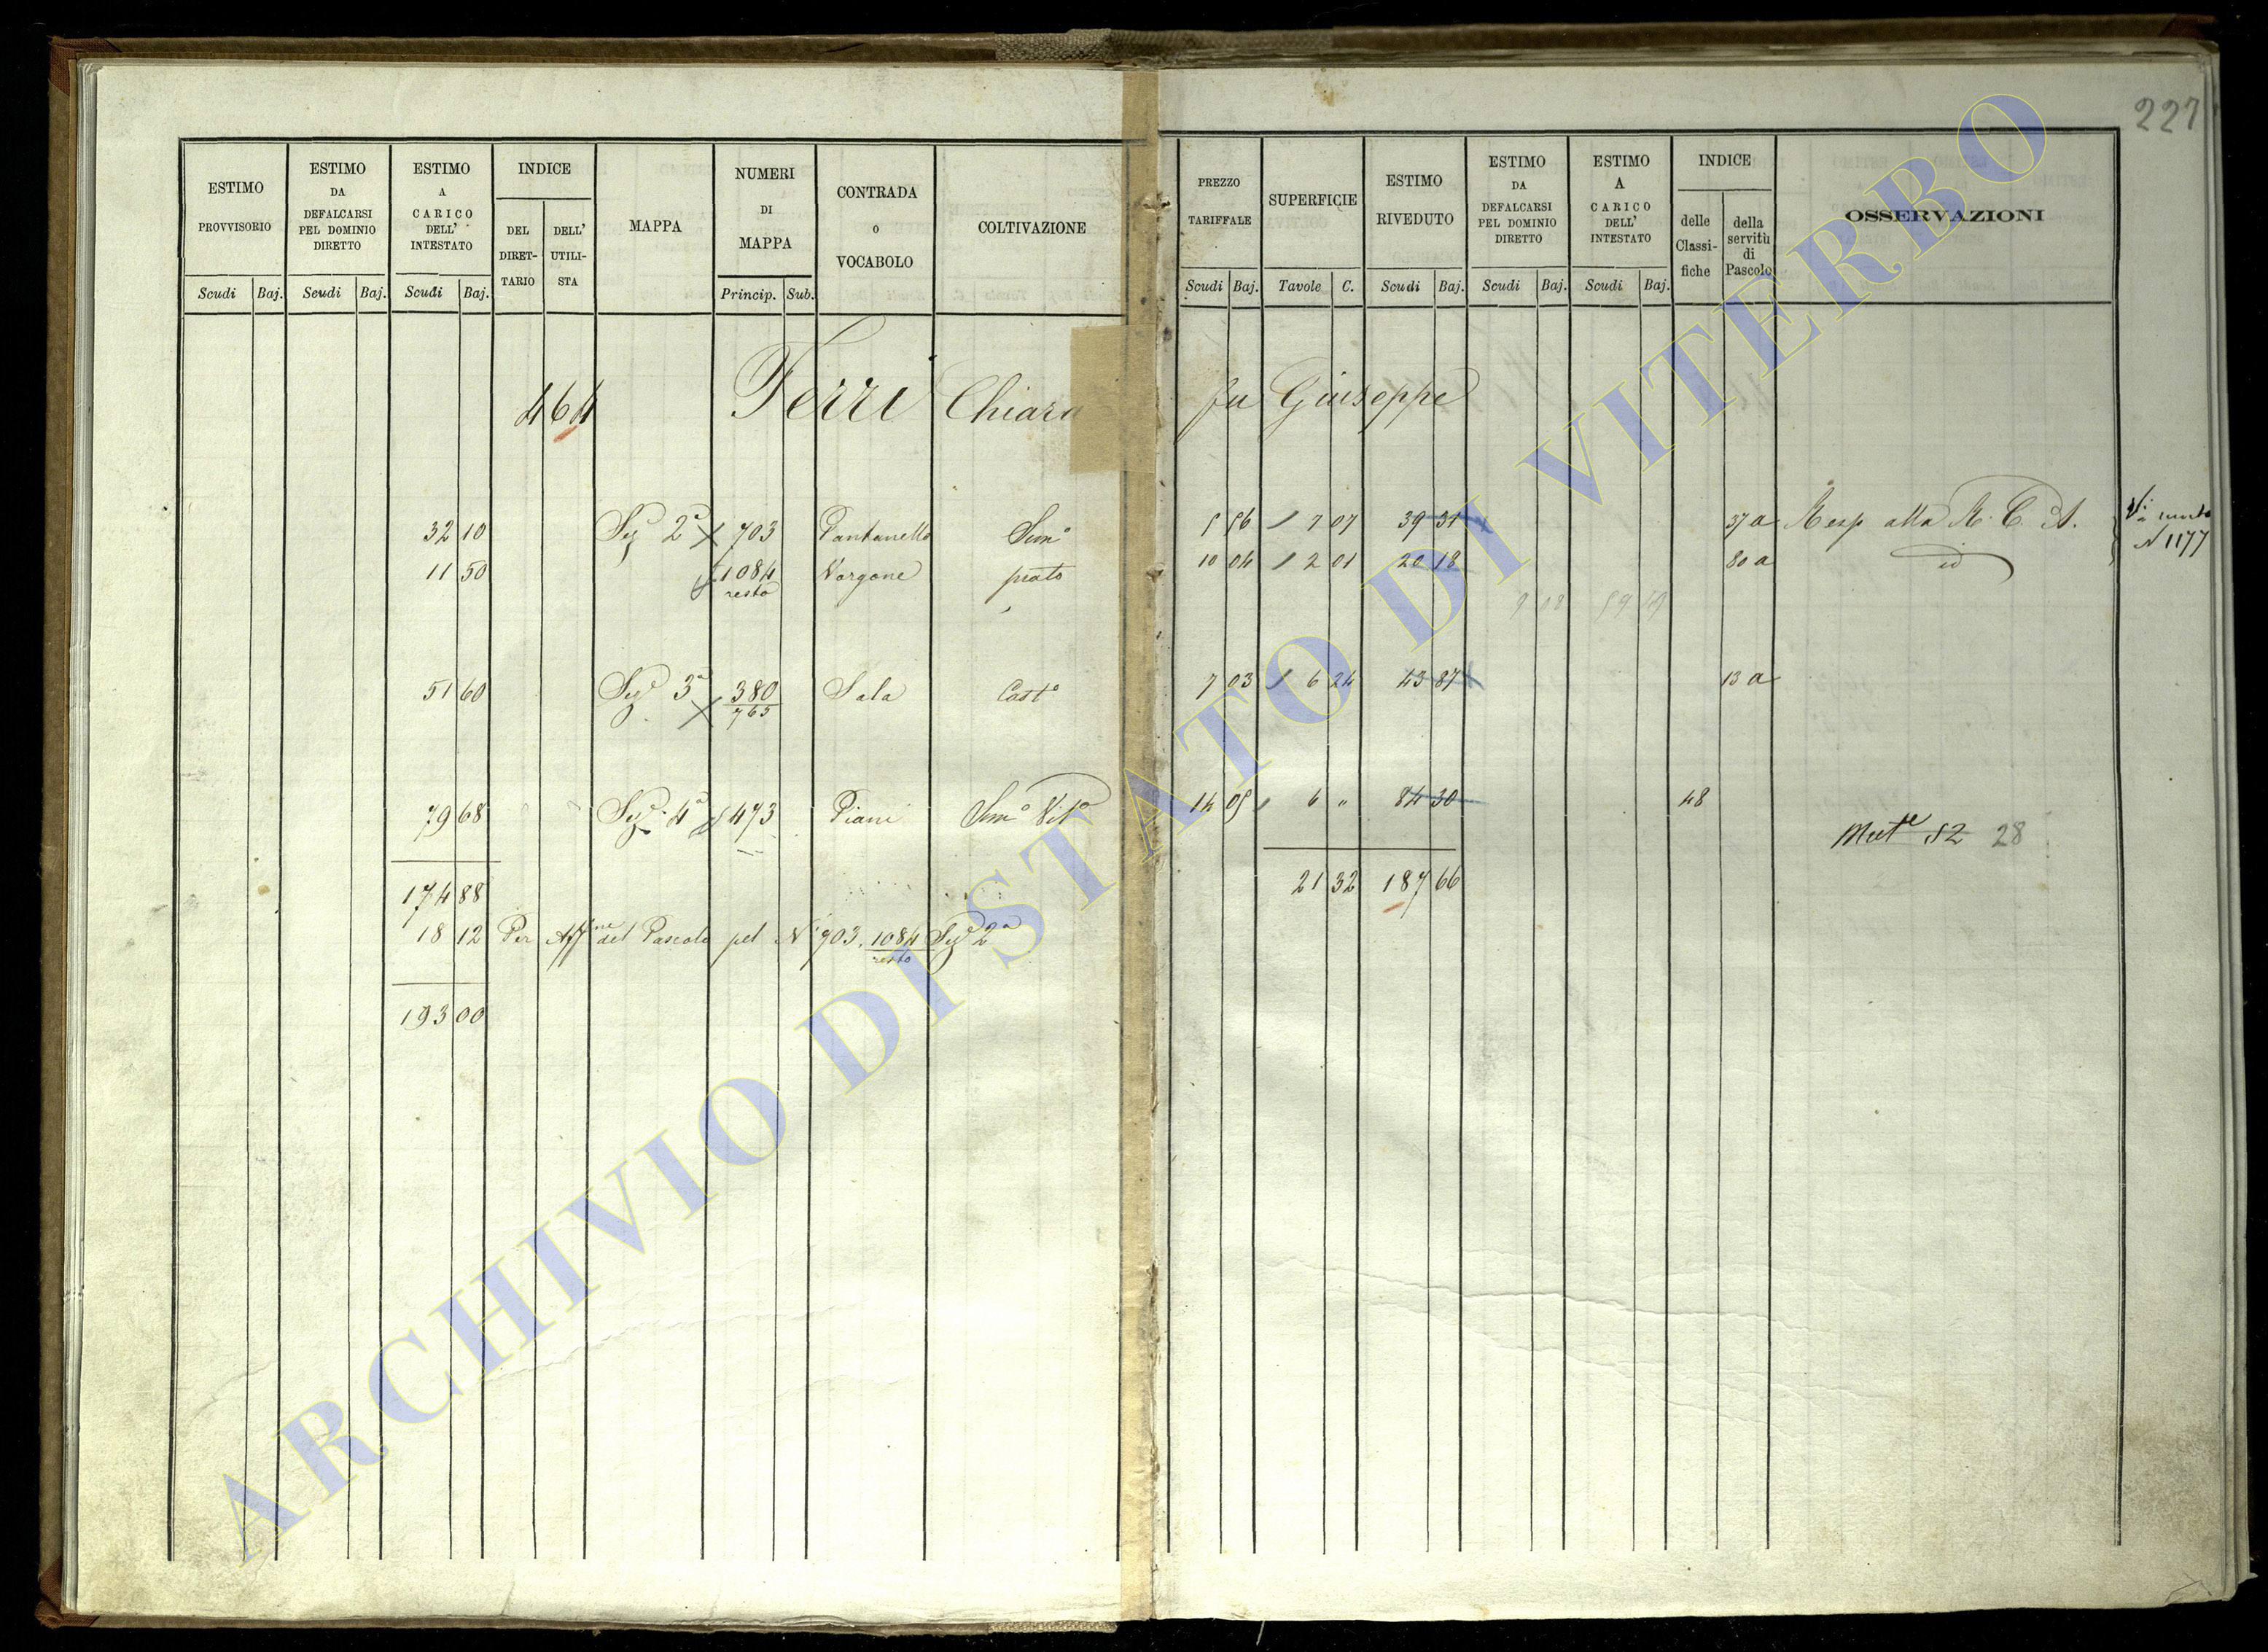 227
ESTIMO PROVVISORIO Scudi Baj.
ESTIMO DA DEFALCARSI PEL DOMINIO DIRETTO Scudi Baj.
ESTIMO A CARICO DELL' INTESTATO Scudi Baj.
INDICE DEL DIRET- TARIO DELL' UTILI- STA
MAPPA
NUMERI DI MAPPA Princip. Sub.
CONTRADA O VOCABOLO
COLTIVAZIONE
PREZZO TARIFFALE Scudi Baj.
SUPERFICIE Tavole C.
ESTIMO RIVEDUTO Scudi Baj.
ESTIMO DA DEFALCARSI PEL DOMINIO DIRETTO Scudi Baj.
ESTIMO A CARICO DELL' INTESTATO Scudi Baj.
INDICE delle Classi- fiche della servitù di Pascolo
OSSERVAZIONI
464 Ferri Chiara fu Giuseppe
32 10 Sez 2a 703 Pantanello Sem° 5 56 7 07 39 31 37 a Resp alla R. C. A.
N 1177
11 50 1084 resto Vorgone prato 10 04 2 01 20 18 80 a id
9 08 59 49
51 60 Sez 3a 380 765 Sala Cast° 7 03 6 24 43 87 13 a
79 68 Sez. 4a 473 Piani Sem° Vit° 14 05 6 " 84 30 48
52 28
174 88 21 32 187 66
18 12 Per Aff.ne del Pascolo pel N 703. 1084 resto Sez 2a
193 00
ARCHIVIO DI STATO DI VITERBO